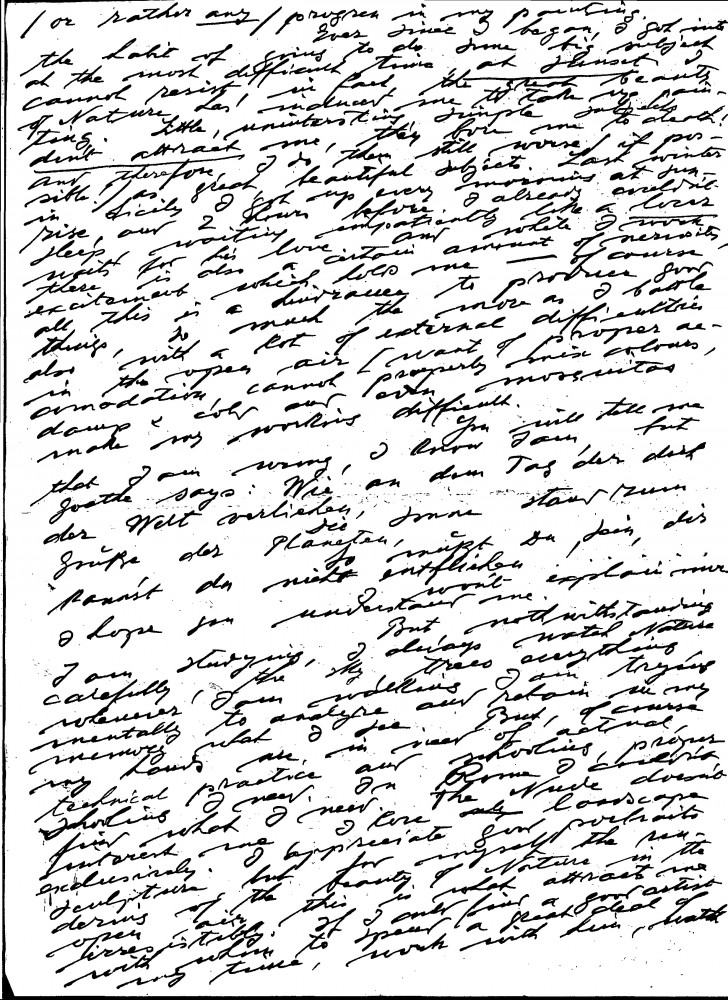 / or rather any / progress in my painting.
Ever since I began, I got into
the habit of going to do some big subject
at the most difficult time, at sunset. I
cannot resist, in fact, the great beauty
of Nature has induced me to take up pain-
ting. Little, uninteresting simple subjects
dont attract me, they bore me to death!
and therefore, I do them still worse, if pos-
sible, as great, beautiful subjects. Last winter
in Sicily I got up every morning at sun-
rise, and 2 hours before I already couldn't
sleep, waiting impatiently like a lover
waits for his love. And while I work
there is also a certain amount of nervosity,
excitement which holds me — of course
all this is a hindrance to produce good
things, so much the more as I battle
also with a lot of external difficulties
in the open air / want of proper ac-
comodation, cannot properly mix colours,
damp & cold and even mosquitos
make my working difficult.
You will tell me
that I am wrong, I know I am, but
Goethe says: Wie an dem Tag der dich
der Welt verliehen, die Sonne stand zum
Gruße der Planeten,
So mußt Du sein, dir
kannst du nicht entfliehen
I won't explain more
I hope you understand me.
But nothwithstanding
I am studying, I always watch Nature
carefully, the sky trees everything
whenever I am walking I am trying
mentally to analyze and retain in my
memory what I see. But, of course
my hands are in need of actual
technical practice and schooling, proper
schooling I need. In Rome I couldn't
find what I need. The Nude doesn't
interest me I love only landscape
exclusively. I appreciate good portraits
sculpture but for myself the ren-
dering of the beauty of Nature in the
open air, this is what attracts me
irresistibly. If I only find a good artist
with whom to spend a great deal of
my time, work with him,